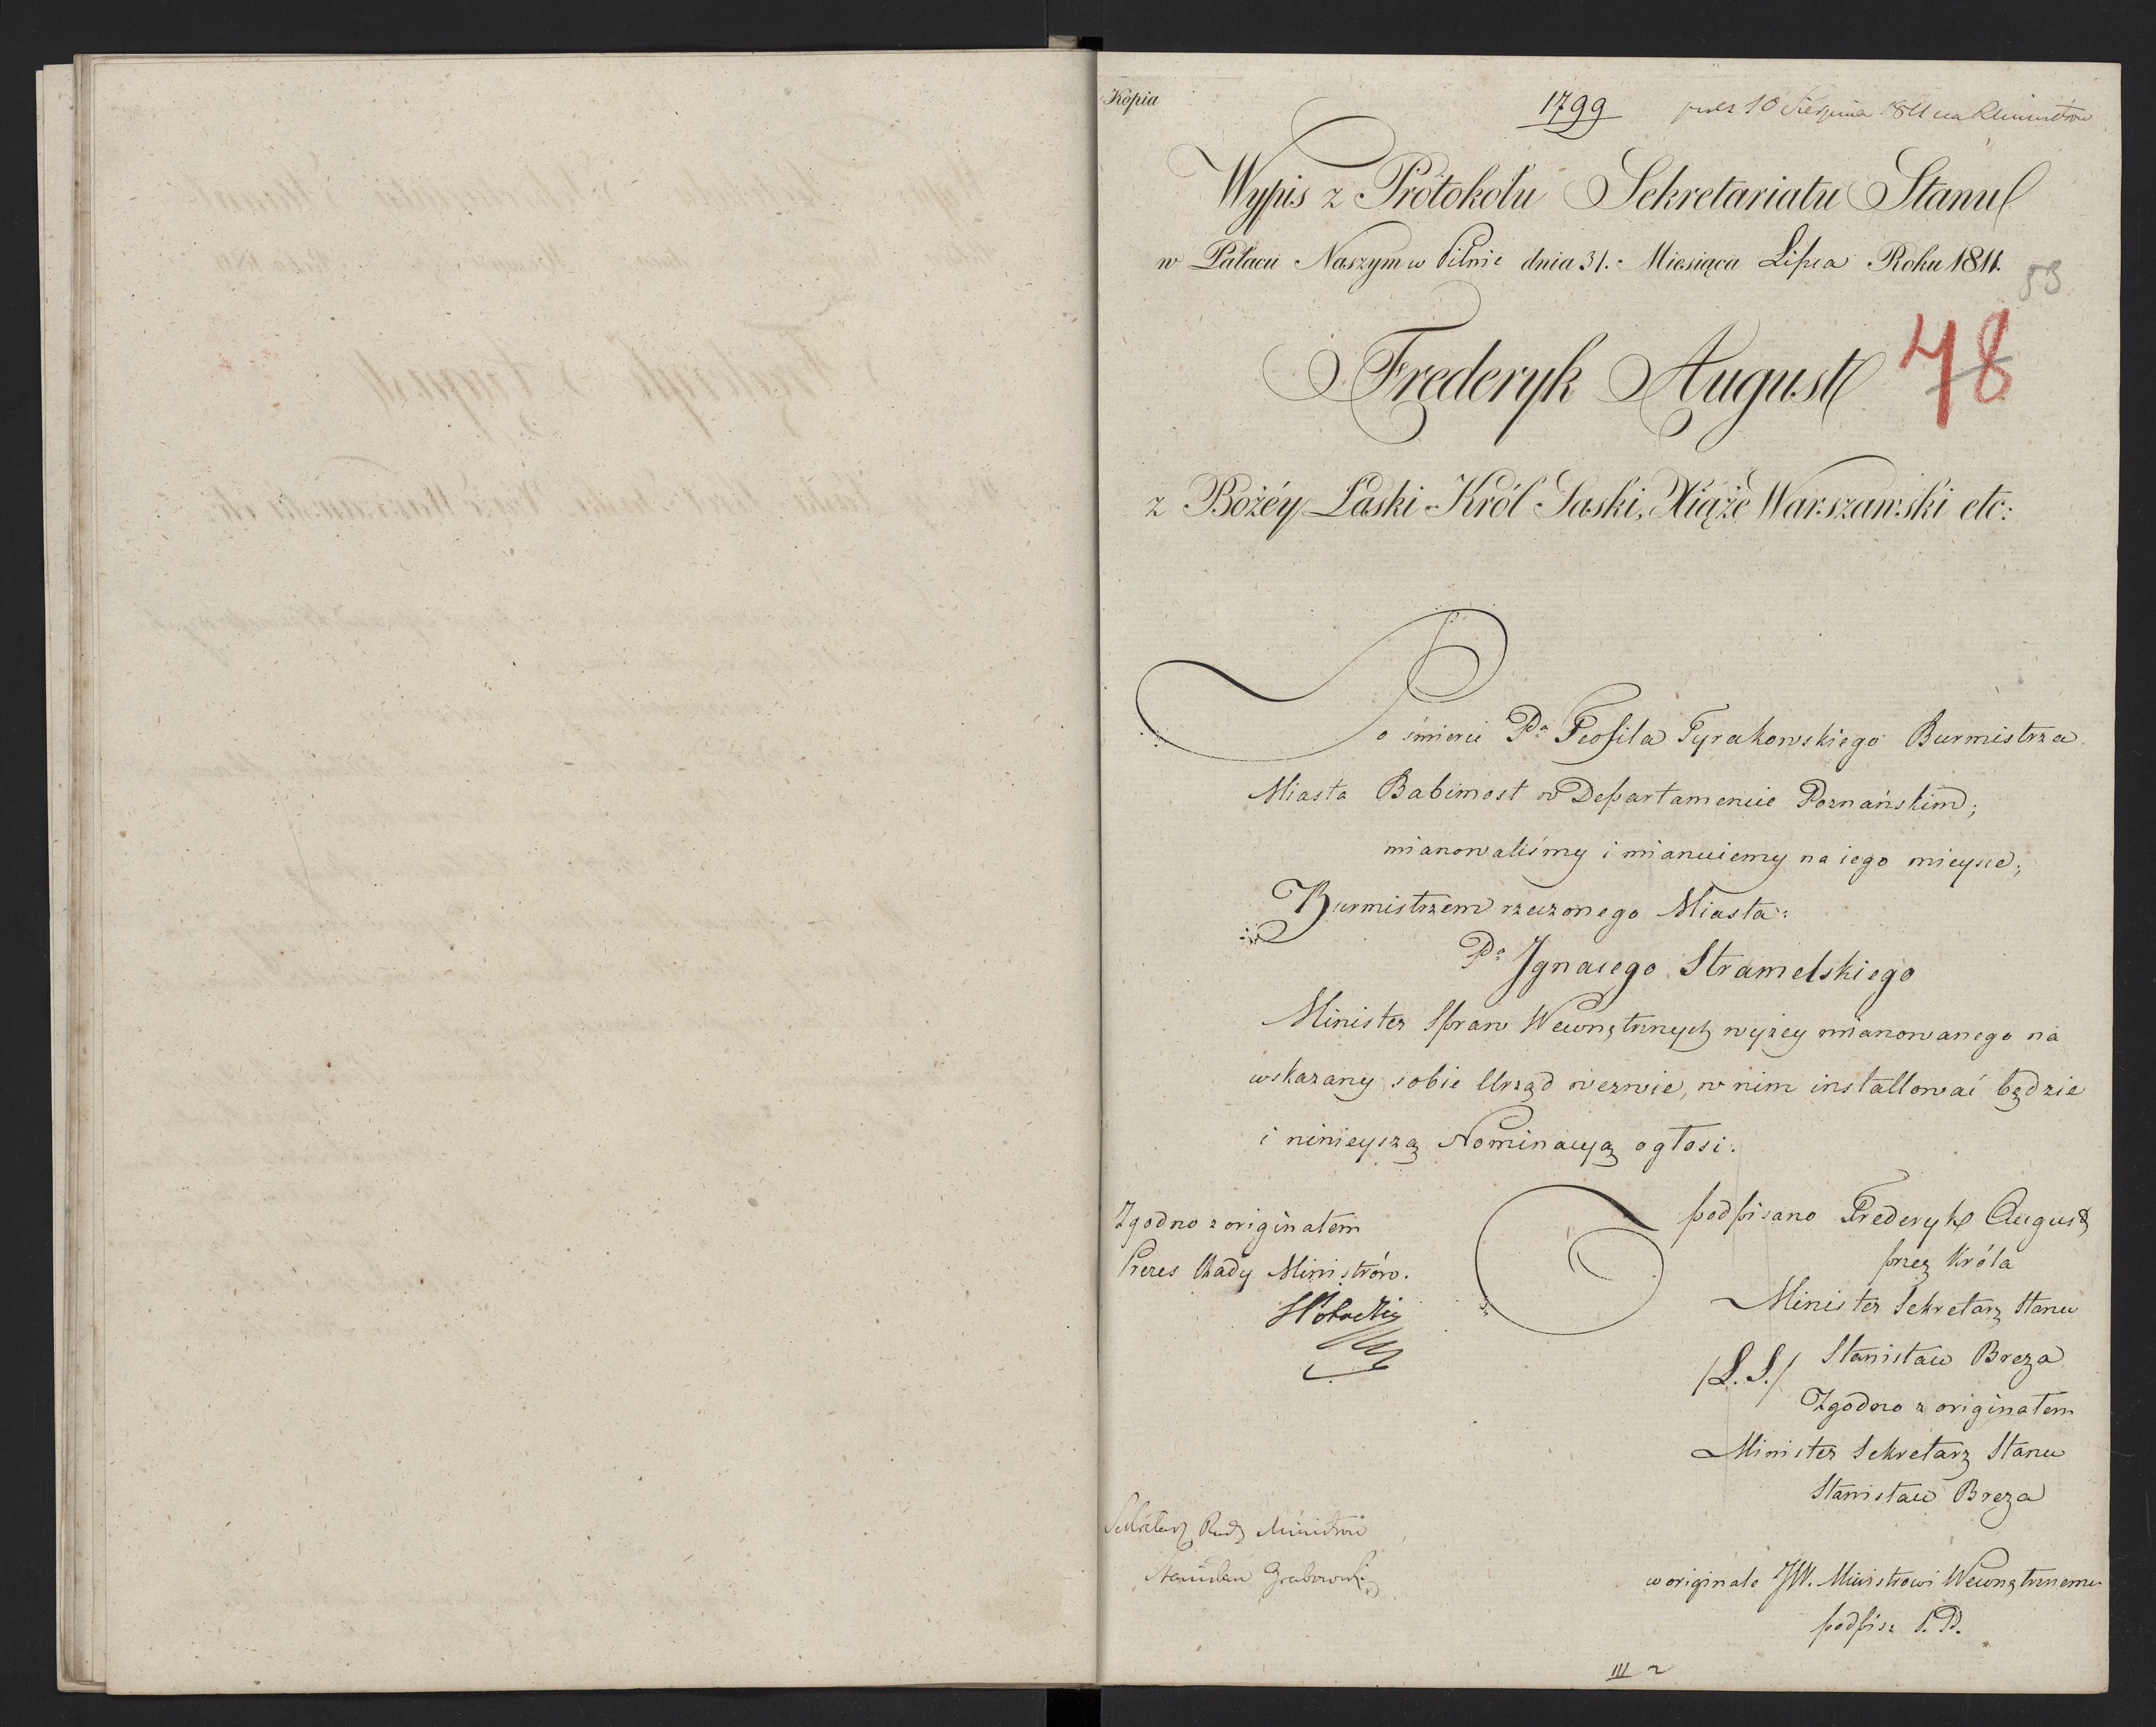 Kopia
1799 10 Sierpnia 1811 na R Ministrów
Wypis z Protokołu Sekretariatu Stanu
w Pałacu Naszym w Pilnic dnia 31. Miesiąca Lipca Roku 1811.
53
Frederyk August
48
z Bożéy Łaski Król Saski, Xiąże Warszawski etc:
Po śmierci Pa Teofila Tyrakowskiego Burmistrza
Miasta Babimost w Departamencie Poznańskim;
mianowaliśmy i mianuiemy na iego mieysce;
Burmistrzem rzeczonego Miasta:
Pa Ignacego Stramelskiego
Minister Spraw Wewnętrznych wyżey mianowanego na
wskazany sobie Urząd wezwie, w nim installować będzie
i ninieyszą Nominacyą ogłosi.
podpisano Frederyk August
przez Króla
Minister Sekretarz Stanu
/L.S./ Stanisław Breza
Zgodno z originałem
Minister Sekretarz Stanu
Stanisław Breza
Zgodno z originałem
Prezes Rady Ministrów.
SPotocki
Sekretarz Rady Ministrów
Stanisław Grabowski
w originale JW. Ministrowi Wewnętrznemu
podpis: S.P.
III 2